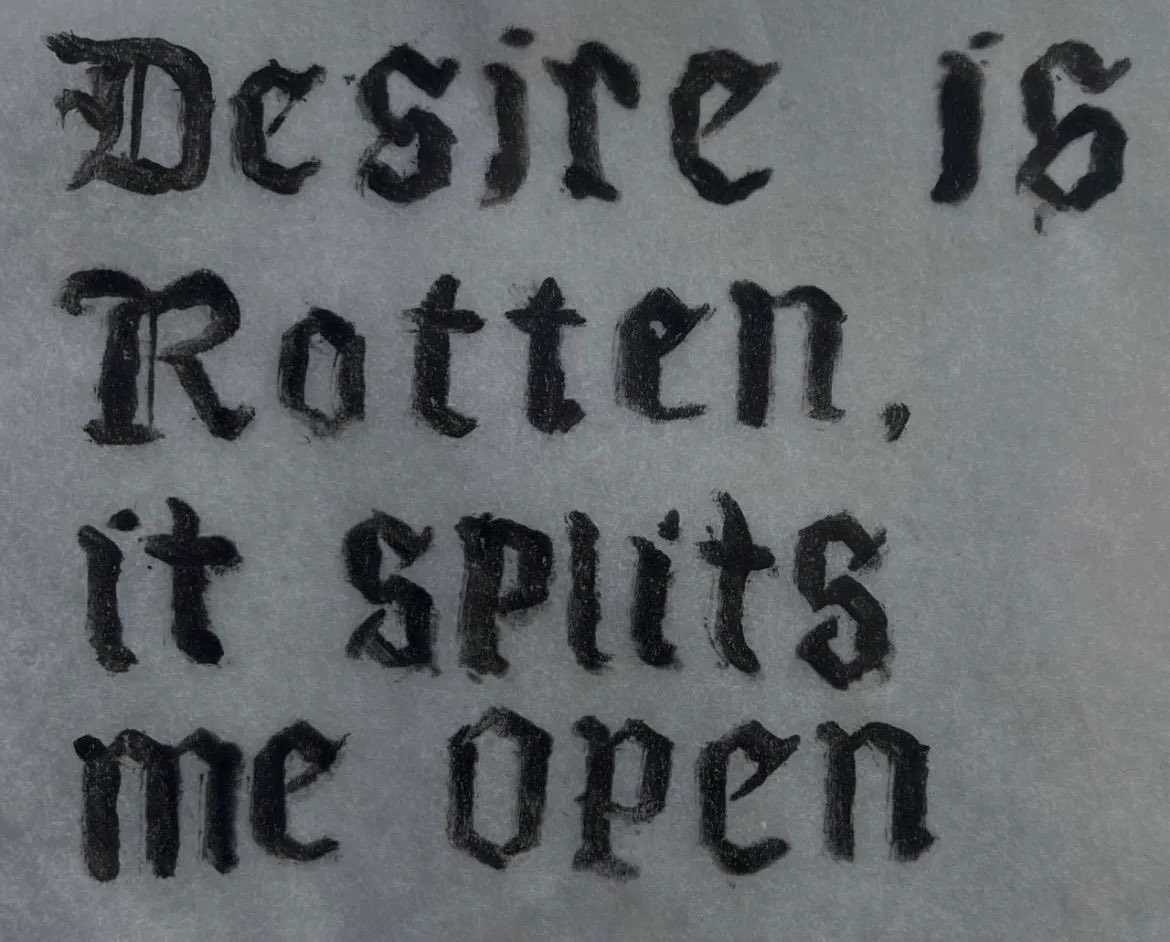 Desire is
Rotten,
it splits
me open